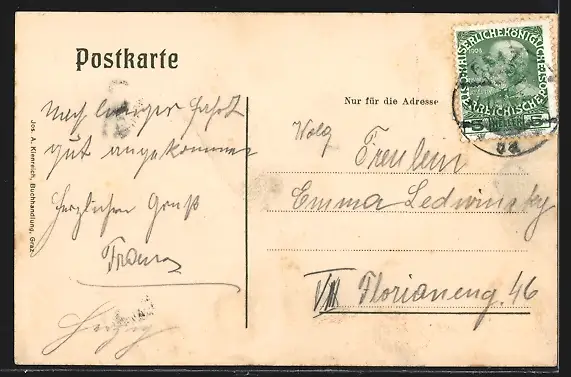 Postkarte
Nach langer Fahrt
gut angekommen
Herzlichen Gruß
Franz
Nur für die Adresse
Wolg
Freulein
Emma Ledwinsky
VIII Florianeng. 46
Jos. A. Kienreich, Buchhandlung, Graz
KAISERLICHE KÖNIGLICHE
ÖSTERREICHISCHE POST
1908
5 HELLER 5